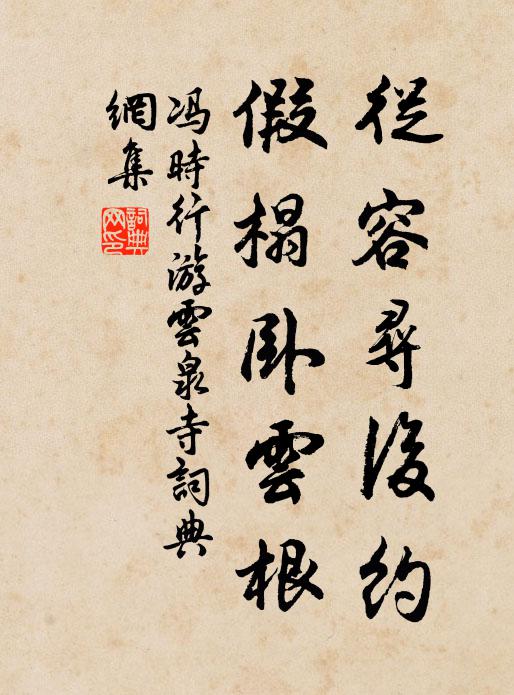 從容尋後約
假榻臥雲根
冯時行游雲泉寺詞典
網集
詞典
网印